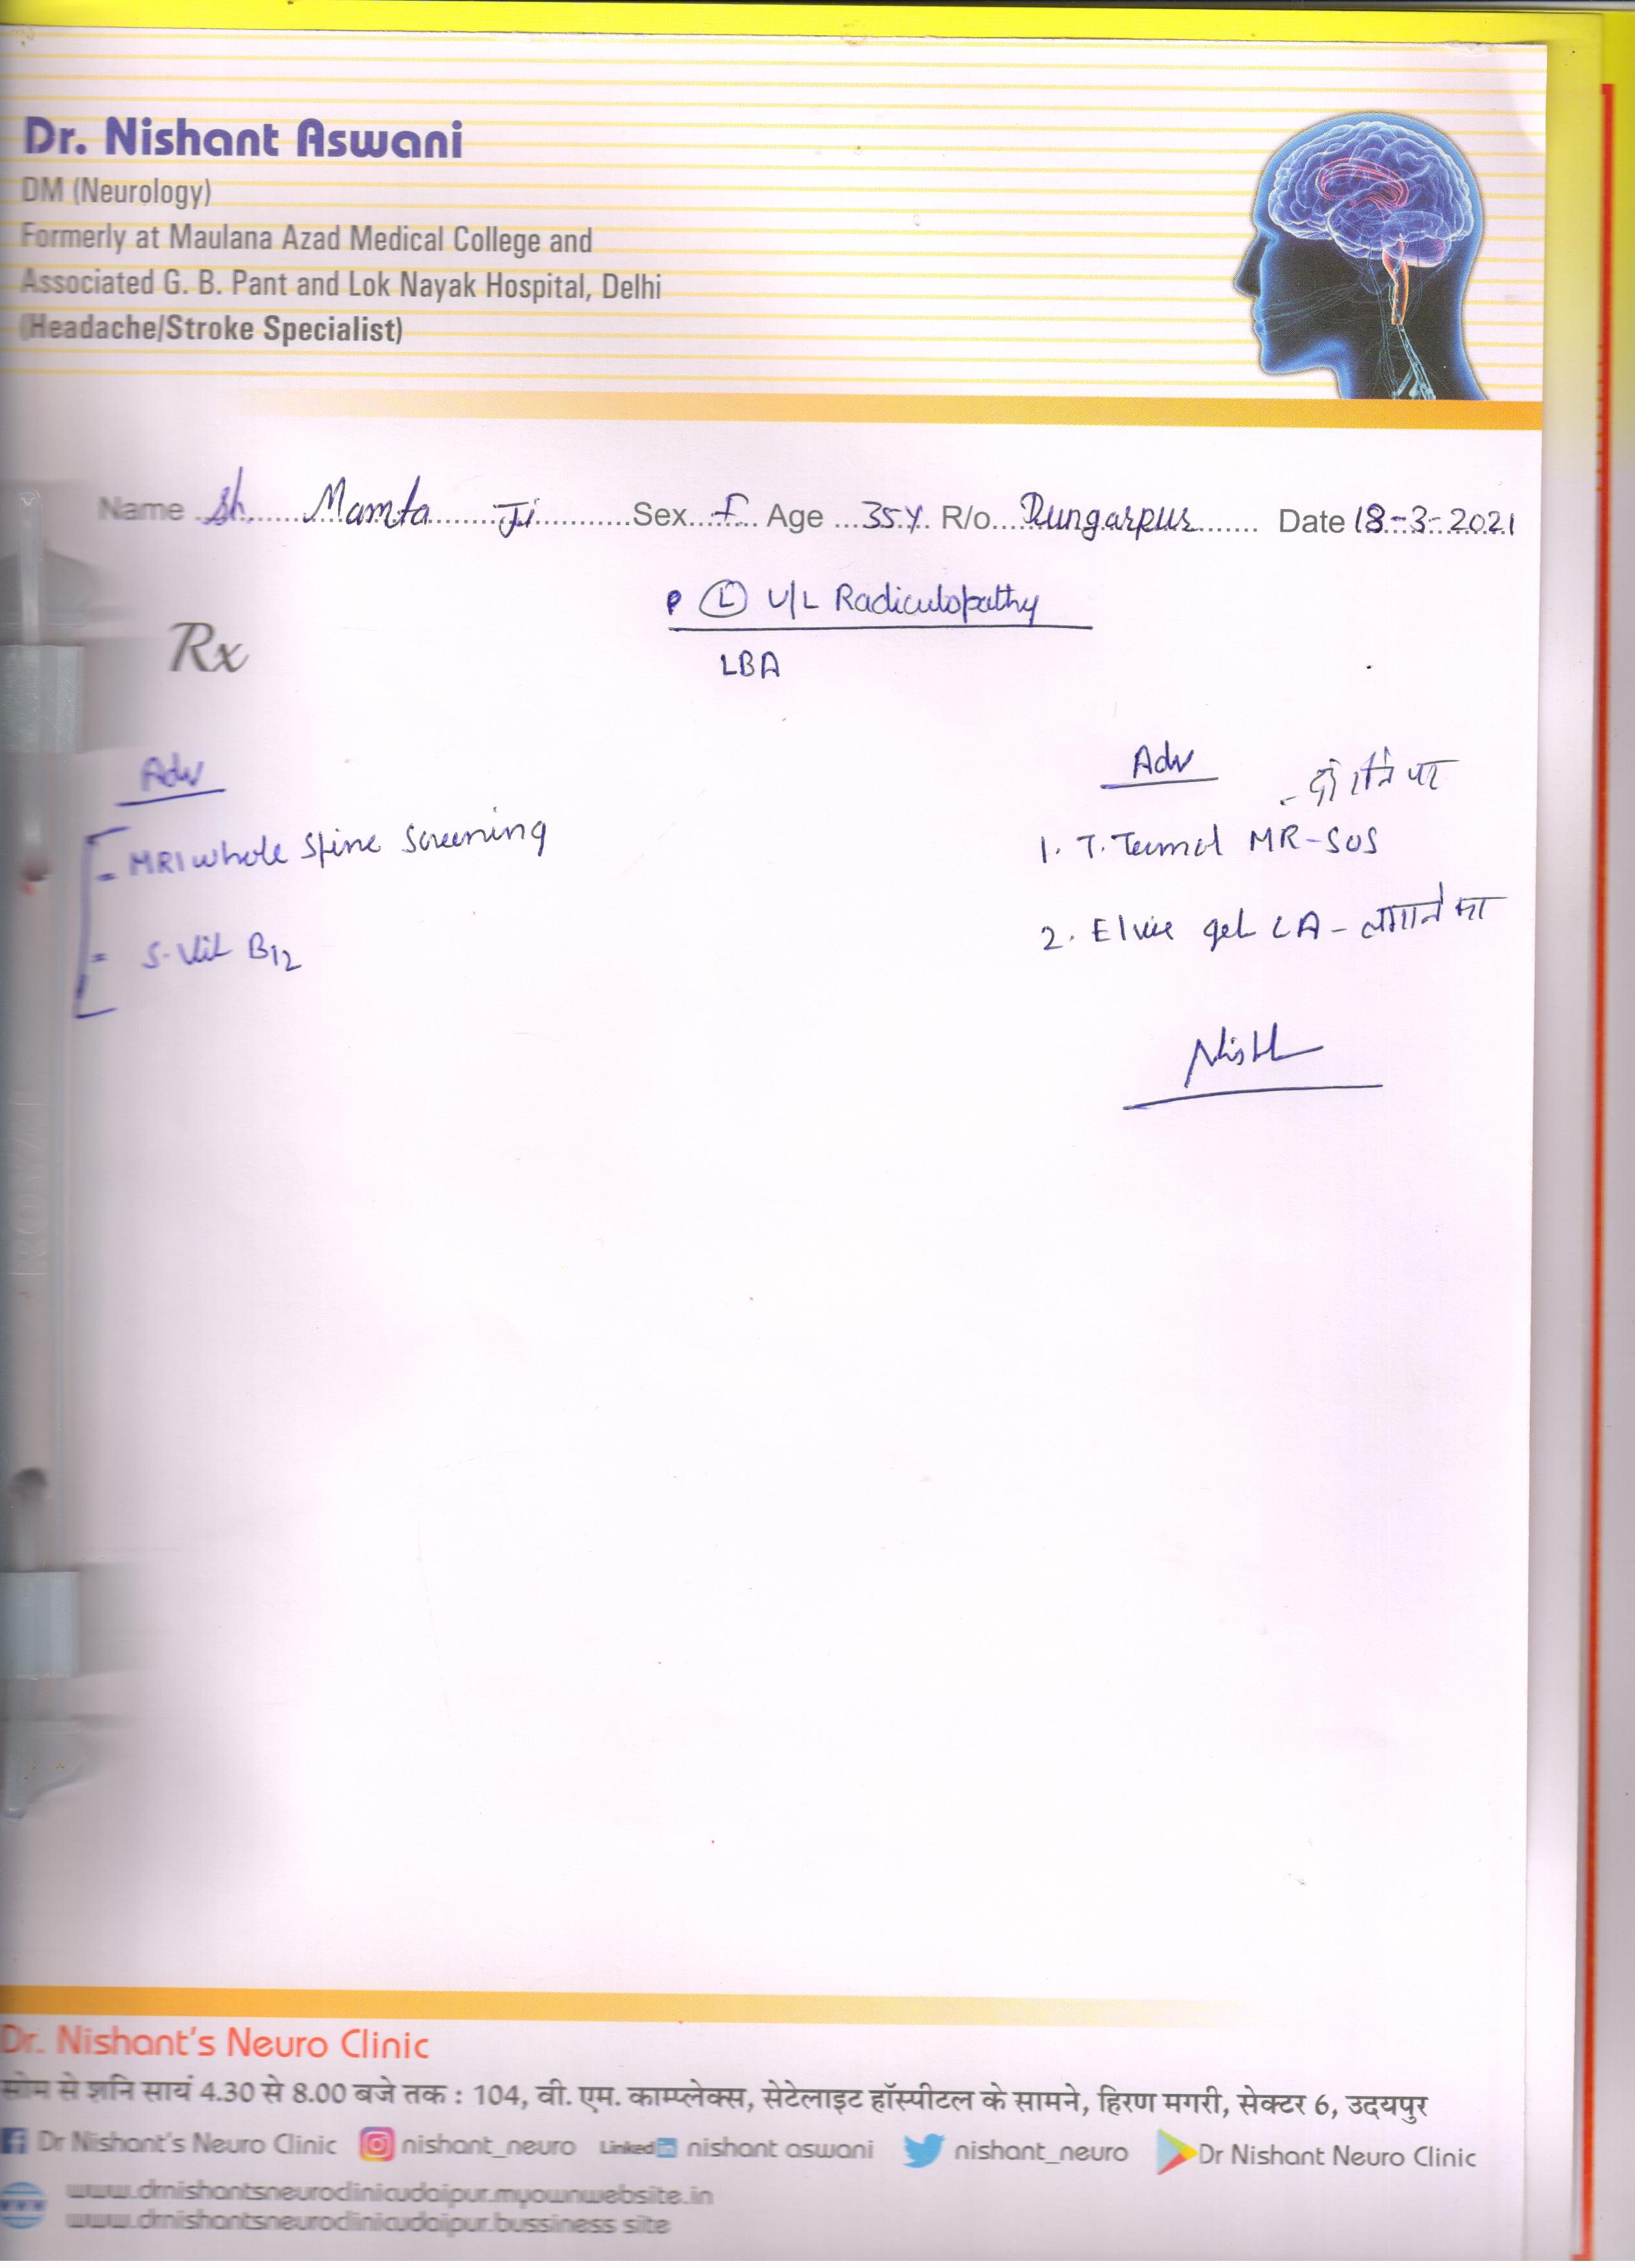 Dr. Nishant Aswani
DM (Neurology)
Formerly at Maulana Azad Medical College and
Associated G. B. Pant and Lok Nayak Hospital, Delhi
(Headache/Stroke Specialist)
Name Sh. Mamta Ji Sex F Age 35 Y R/o Dungarpur Date 18-3-2021
P Ⓛ U/L Radiculopathy
LBA
Rx
Adv
- MRI whole spine screening
= S. Vit B12
Adv
1. T. MR-SOS
2. gel LA - लगाने का
Dr. Nishant's Neuro Clinic
सोम से शनि सायं 4.30 से 8.00 बजे तक : 104, वी. एम. काम्प्लेक्स, सेटेलाइट हॉस्पीटल के सामने, हिरण मगरी, सेक्टर 6, उदयपुर
Dr Nishant's Neuro Clinic nishant_neuro Linked in nishant aswani nishant_neuro Dr Nishant Neuro Clinic
www.drnishantsneuroclinicudaipur.myownwebsite.in
www.drnishantsneuroclinicudaipur.bussiness site